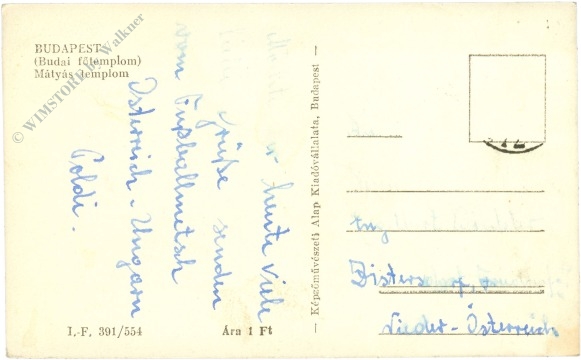 BUDAPEST
(Budai főtemplom)
Mátyás templom
© WIMSTORE B. Walkner
heute viele
Grüße senden
vom Fußballmatsch
Österreich - Ungarn
Poldi.
I.-F. 391/554
Ára 1 Ft
— Képzőművészeti Alap Kiadóvállalata, Budapest —
Nieder-Österreich